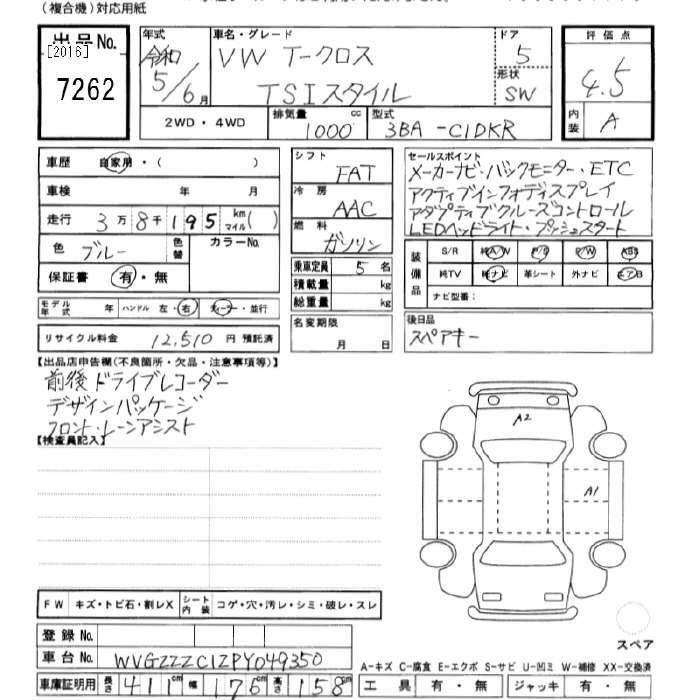 (複合機)対応用紙
出品No.
[2016]
7262
年式
令和
5/6月
車名・グレード
VW T-クロス
TSIスタイル
ドア
5
形状
SW
評価点
4.5
内装
A
2WD・4WD
排気量
1000 cc
型式
3BA-C1DKR
車歴 自家用・( )
車検 年 月
走行 3万8千195 km マイル( )
色 ブルー 色替 カラーNo.
保証書 有・無
モデル年式 年 ハンドル 左・右 ディーラー・並行
リサイクル料金 12,510 円 預託済
シフト
FAT
冷房
AAC
燃料
ガソリン
乗車定員 5 名
積載量 kg
総重量 kg
名変期限
月 日
セールスポイント
メーカーナビ・バックモニター・ETC
アクティブインフォディスプレイ
アダプティブクルーズコントロール
LEDヘッドライト・プッシュスタート
装備品
S/R 純A/W P/S P/W ABS
純TV 純ナビ 革シート 外ナビ エアB
ナビ型番:
後日品
スペアキー
【出品店申告欄(不良箇所・欠品・注意事項等)】
前後ドライブレコーダー
デザインパッケージ
フロント・レーンアシスト
【検査員記入】
A2
A1
FW キズ・トビ石・割レX シート内装 コゲ・穴・汚レ・シミ・破レ・スレ
登録No.
車台No. WVGZZZC1ZPY049350
車庫証明用 長さ 411cm 幅 176cm 高さ 158cm
スペア
A-キズ C-腐食 E-エクボ S-サビ U-凹ミ W-補修 XX-交換済
工具 有・無 ジャッキ 有・無